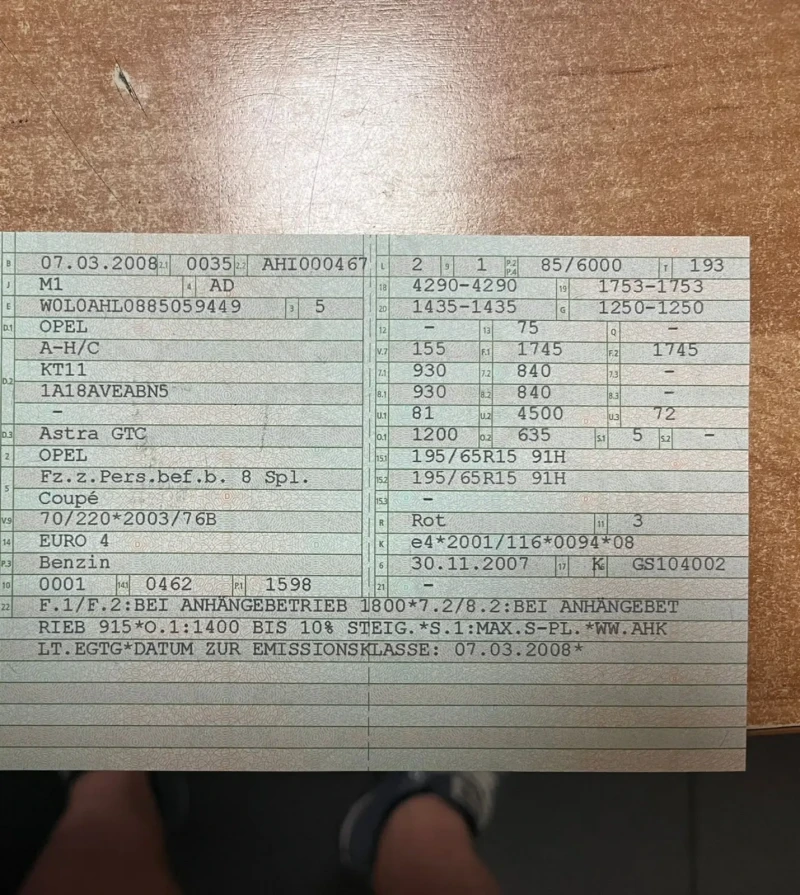 B 07.03.2008 2.1 0035 2.2 AHI000467
J M1 4 AD
E W0L0AHL0885059449 3 5
D.1 OPEL
D.2 A-H/C
KT11
1A18AVEABN5
–
D.3 Astra GTC
2 OPEL
5 Fz.z.Pers.bef.b. 8 Spl.
Coupé
V.9 70/220*2003/76B
14 EURO 4
P.3 Benzin
10 0001 14.1 0462 P.1 1598
L 2 9 1 P.2 P.4 85/6000 T 193
18 4290-4290 19 1753-1753
20 1435-1435 G 1250-1250
12 – 13 75 Q –
V.7 155 F.1 1745 F.2 1745
7.1 930 7.2 840 7.3 –
8.1 930 8.2 840 8.3 –
U.1 81 U.2 4500 U.3 72
O.1 1200 O.2 635 S.1 5 S.2 –
15.1 195/65R15 91H
15.2 195/65R15 91H
15.3 –
R Rot 11 3
K e4*2001/116*0094*08
6 30.11.2007 17 K GS104002
21 –
22 F.1/F.2:BEI ANHÄNGEBETRIEB 1800*7.2/8.2:BEI ANHÄNGEBET
RIEB 915*O.1:1400 BIS 10% STEIG.*S.1:MAX.S-PL.*WW.AHK
LT.EGTG*DATUM ZUR EMISSIONSKLASSE: 07.03.2008*